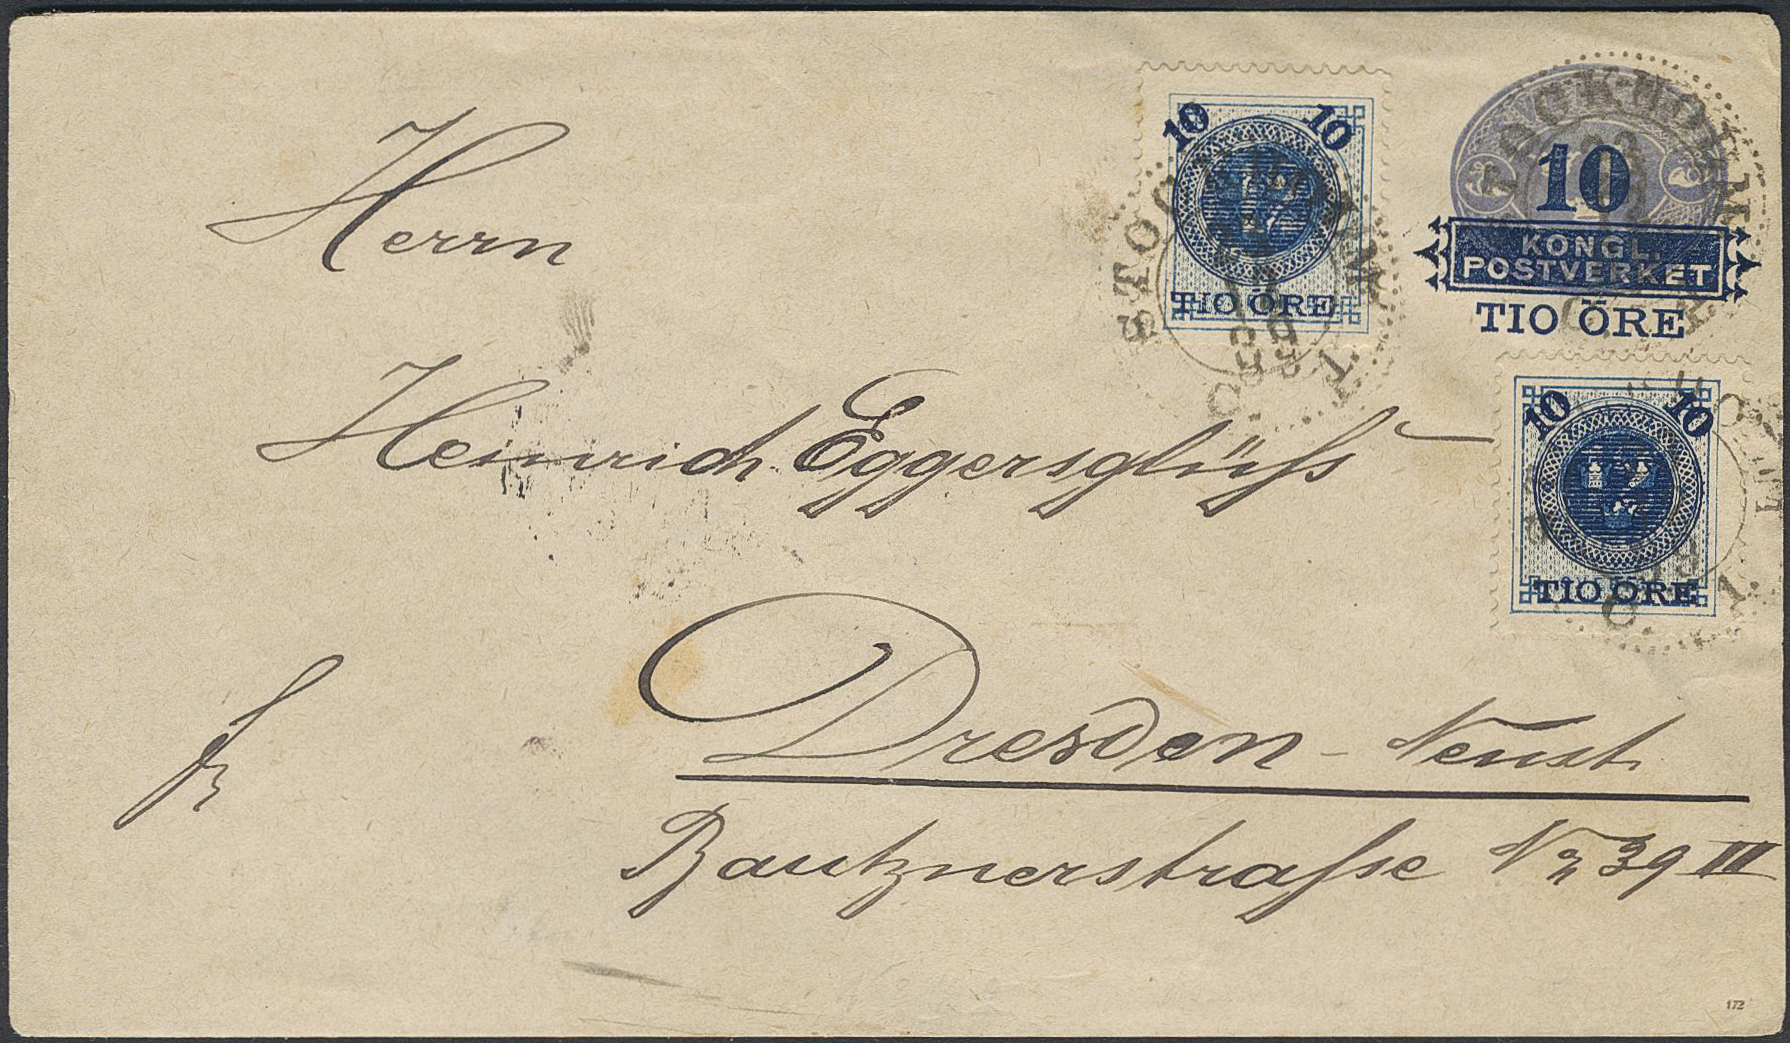 10 10
TIO ÖRE
10
KONGL.
POSTVERKET
TIO ÖRE
10 10
TIO ÖRE
STOCKHOLM
STOCKHOLM
89
Herrn
Heinrich Eggersglüß
Dresden - Neust.
Bautznerstraße Nr 39 III
172